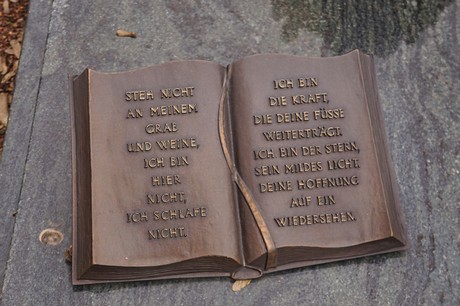 STEH NICHT
AN MEINEM
GRAB
UND WEINE,
ICH BIN
HIER
NICHT,
ICH SCHLAFE
NICHT.
ICH BIN
DIE KRAFT,
DIE DEINE FÜSSE
WEITERTRÄGT.
ICH BIN DER STERN,
SEIN MILDES LICHT.
DEINE HOFFNUNG
AUF EIN
WIEDERSEHEN.